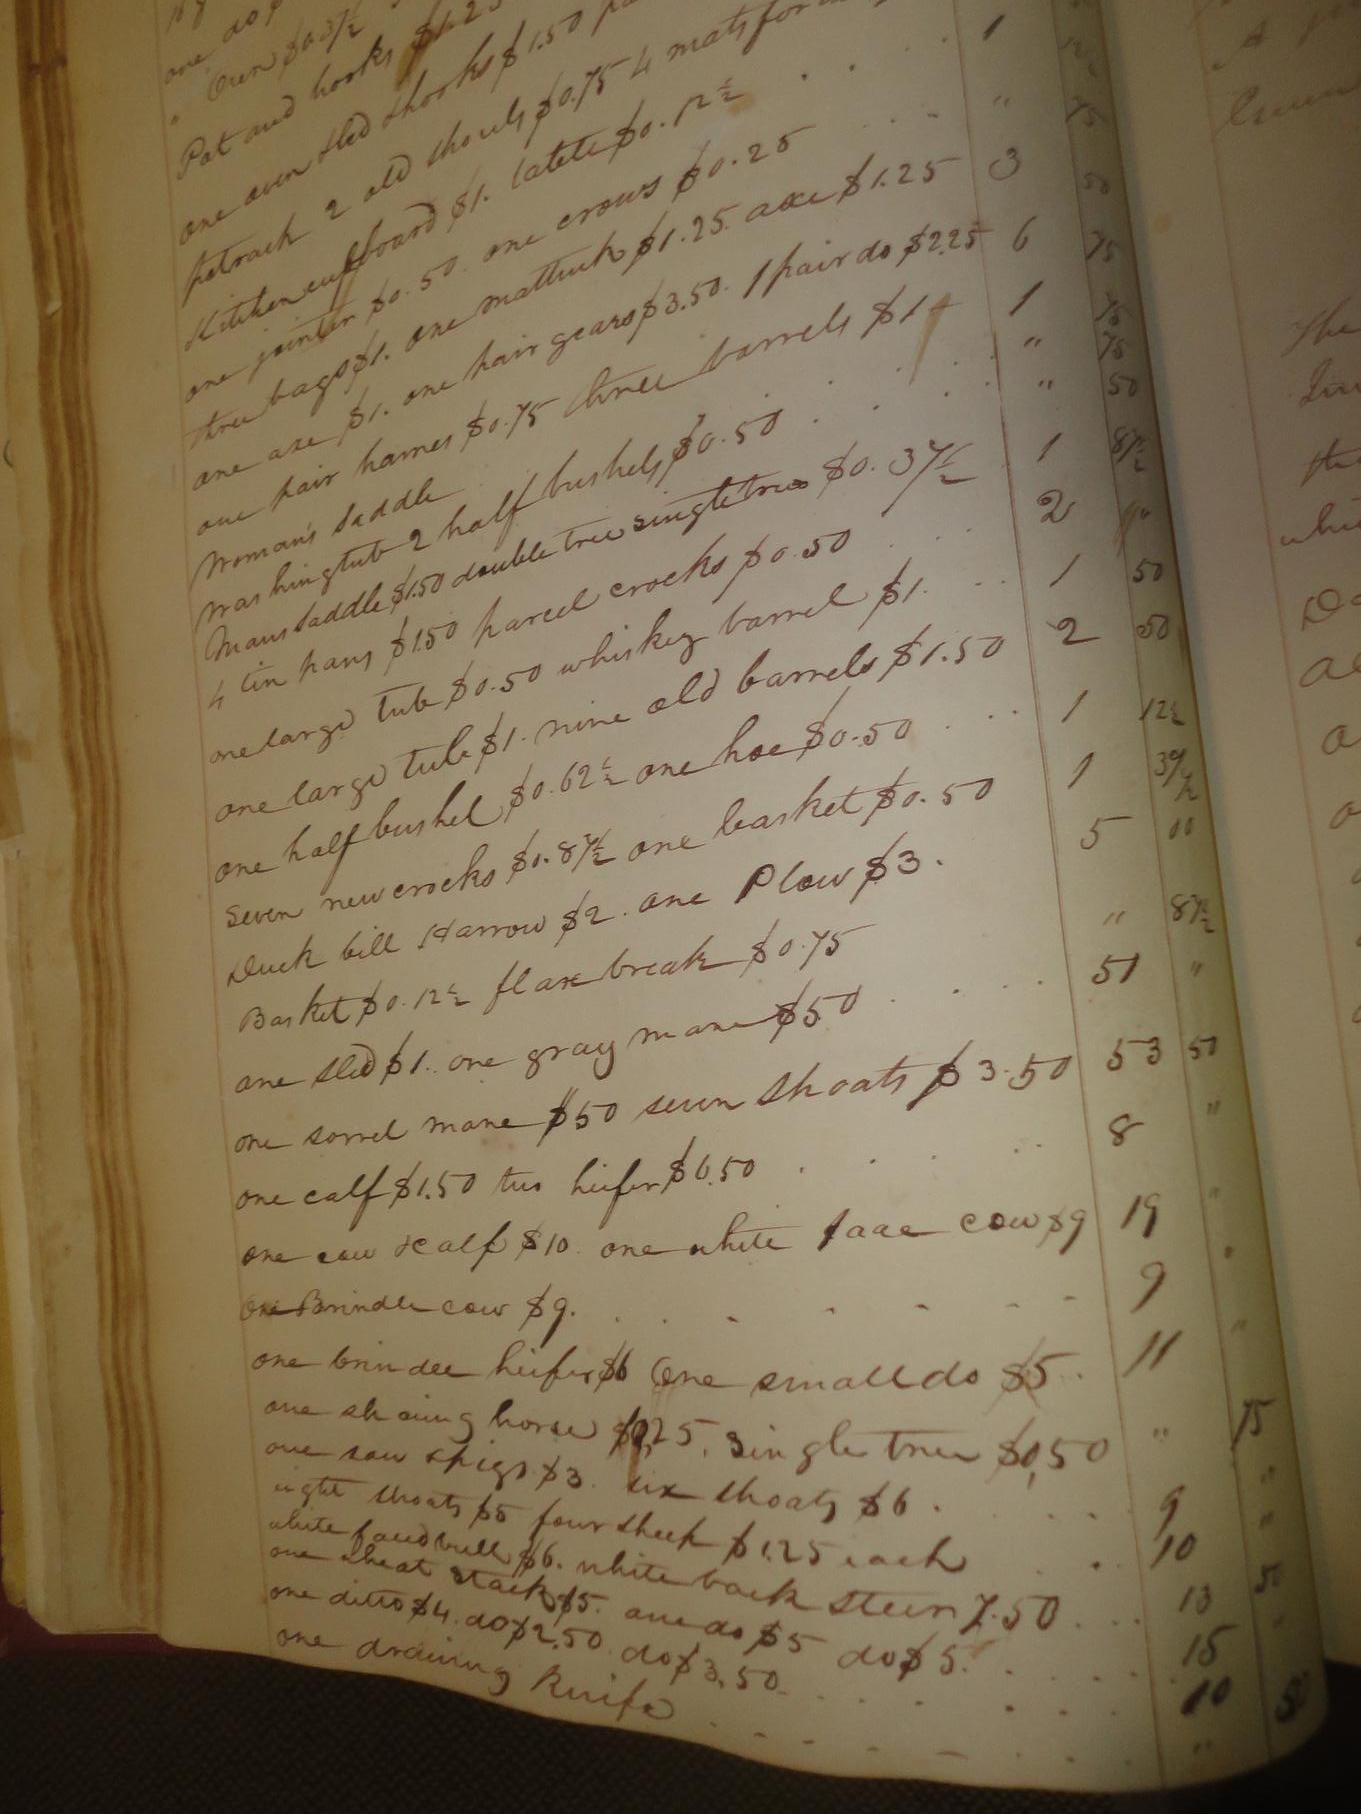 one do
" Oven $0.37½
Pot and hooks $1.25
one oven lid & hooks $1.50
potrack 2 old shovels $0.75 4 mats for 1
Kitchen cupboard $1. $0.12½ " 75
one jointer $0.50. one crows $0.25 3 50
three bags $1. one mattuck $1.25. axe $1.25 6 75
one axe $1. one pair gears $3.50. 1 pair do $2.25 1 75
one pair hames $0.75 three barrels $1 " 75
Woman's saddle " 50
Washingtub 2 half bushels $0.50 1 87½
Mans saddle $1.50 double tree singletree $0.37½ 2 "
4 tin pans $1.50 parcel crocks $0.50 1 50
one large tub $0.50 whiskey barrel $1. 2 50
one large tub $1. nine old barrels $1.50 1 12½
one half bushel $0.62½ one hoe $0.50 1 37½
Seven new crocks $0.87½ one basket $0.50 5 00
Duck bill Harrow $2. one Plow $3. " 87½
Basket $0.12½ flax break $0.75 51 "
one sled $1. one gray mare $50 53 50
one sorrel mare $50 seven shoats $3.50 8 "
one calf $1.50 two heifer $6.50 19 "
one cow & calf $10. one white face cow $9 9 "
One Brindle cow $9. 11 "
one brindee heifer $6 One small do $5. " 75
one shaving horse $0,25. Single tree $0,50 9 "
one sow & pigs $3. six shoats $6. 10 "
eight shoats $5 four sheep $1.25 each 13 50
white faced bull $6. white back steer 7.50 15 "
one wheat stack $5. one do $5 do $5. 10 50
one ditto $4. do $2.50 do $3.50 "
one drawing Knife